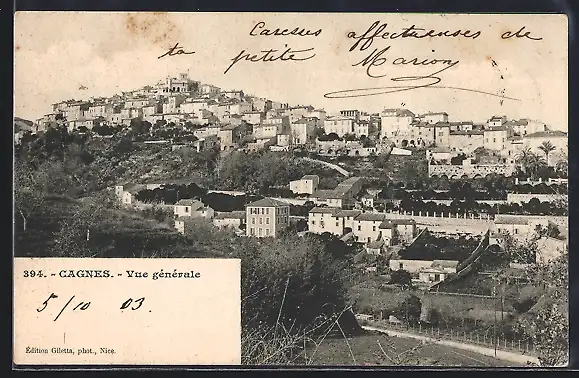 Caresses affectueuses de
ta petite Marion
394. - CAGNES. - Vue générale
5/10 03.
Édition Giletta, phot., Nice.